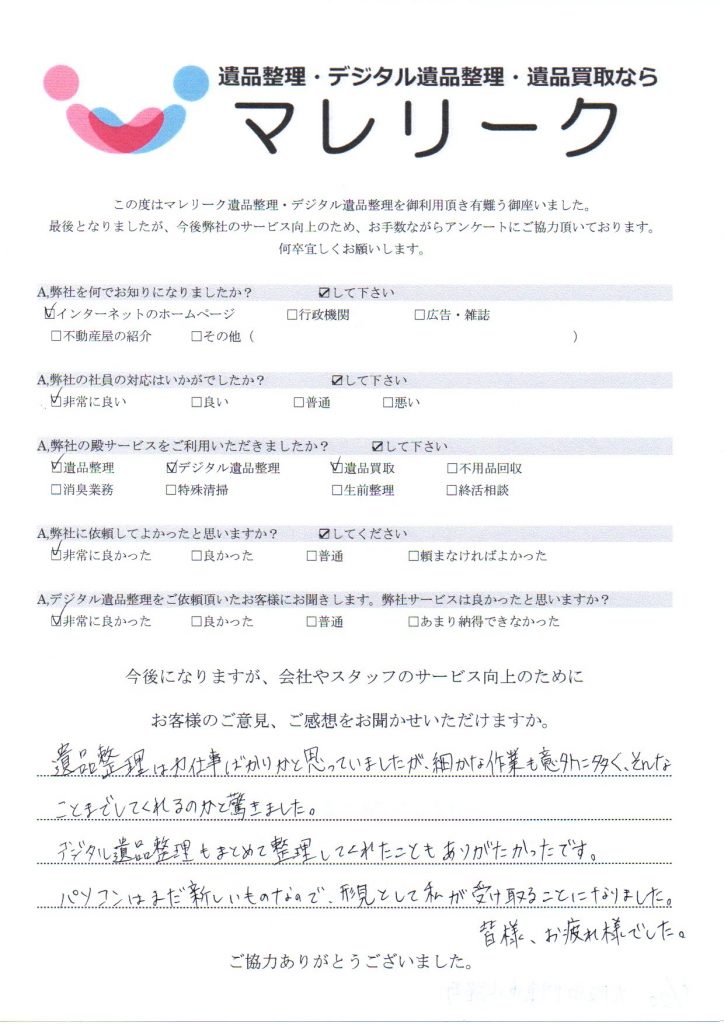 遺品整理・デジタル遺品整理・遺品買取なら
マレリーク
この度はマレリーク遺品整理・デジタル遺品整理を御利用頂き有難う御座いました。
最後となりましたが、今後弊社のサービス向上のため、お手数ながらアンケートにご協力頂いております。
何卒宜しくお願いします。
A,弊社を何でお知りになりましたか？ ☑して下さい
☑インターネットのホームページ □行政機関 □広告・雑誌
□不動産屋の紹介 □その他（ ）
A,弊社の社員の対応はいかがでしたか？ ☑して下さい
☑非常に良い □良い □普通 □悪い
A,弊社の殿サービスをご利用いただきましたか？ ☑して下さい
☑遺品整理 ☑デジタル遺品整理 ☑遺品買取 □不用品回収
□消臭業務 □特殊清掃 □生前整理 □終活相談
A,弊社に依頼してよかったと思いますか？ ☑してください
☑非常に良かった □良かった □普通 □頼まなければよかった
A,デジタル遺品整理をご依頼頂いたお客様にお聞きします。弊社サービスは良かったと思いますか？
☑非常に良かった □良かった □普通 □あまり納得できなかった
今後になりますが、会社やスタッフのサービス向上のために
お客様のご意見、ご感想をお聞かせいただけますか。
遺品整理は力仕事ばかりかと思っていましたが、細かな作業も意外に多く、そんな
ことまでしてくれるのかと驚きました。
デジタル遺品整理もまとめて整理してくれたこともありがたかったです。
パソコンはまだ新しいものなので、形見として私が受け取ることになりました。
皆様、お疲れ様でした。
ご協力ありがとうございました。